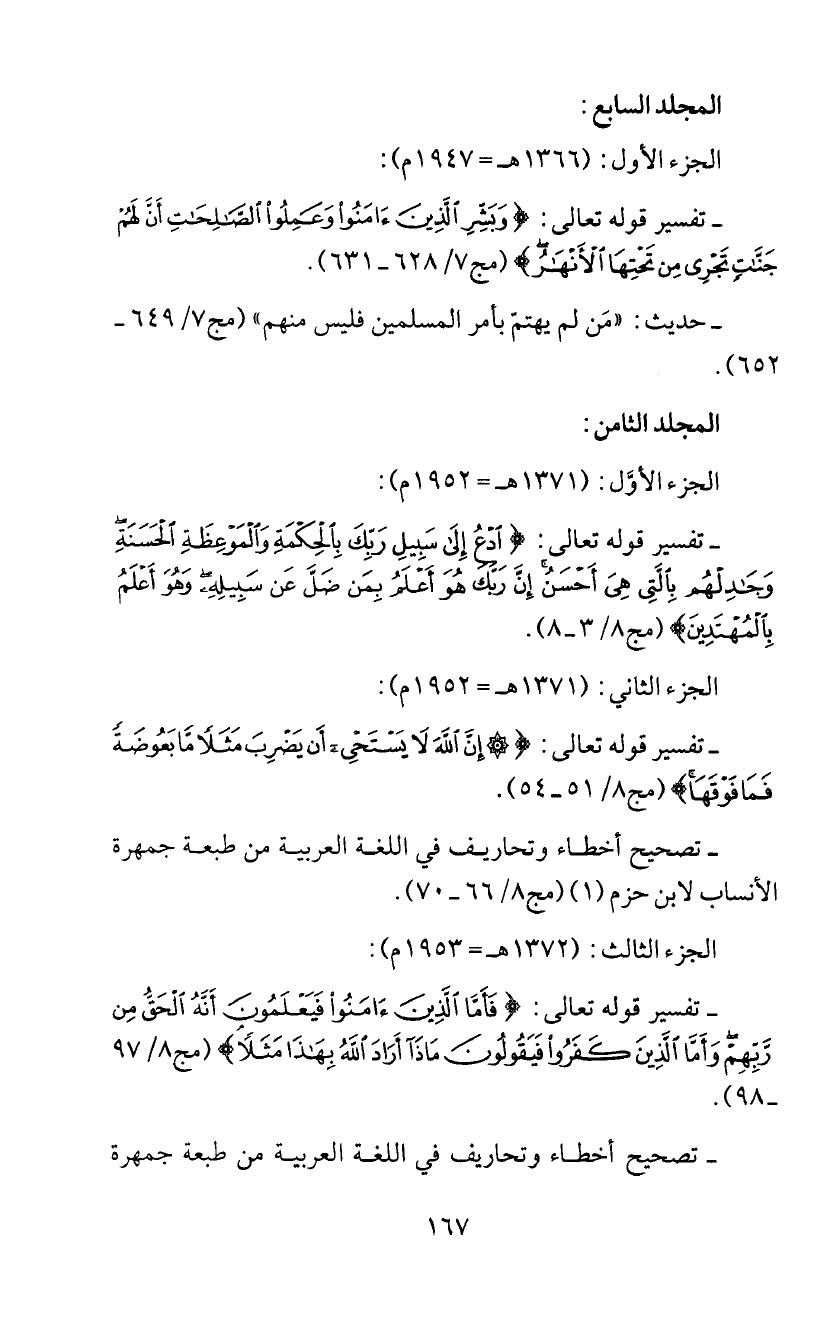 المجلد السابع :
الجزء الأول: (١٣٦٦هـ = ١٩٤٧م):
ـ تفسير قوله تعالى: ﴿ وَبَشِّرِ ٱلَّذِينَ ءَامَنُوا۟ وَعَمِلُوا۟ ٱلصَّٰلِحَٰتِ أَنَّ لَهُمْ
جَنَّٰتٍ تَجْرِى مِن تَحْتِهَا ٱلْأَنْهَٰرُۖ ﴾ (مج٧/ ٦٢٨ ـ ٦٣١).
ـ حديث: «مَن لم يهتمّ بأمر المسلمين فليس منهم» (مج٧/ ٦٤٩ ـ
٦٥٢).
المجلد الثامن :
الجزء الأوَّل: (١٣٧١هـ = ١٩٥٢م):
ـ تفسير قوله تعالى: ﴿ ٱدْعُ إِلَىٰ سَبِيلِ رَبِّكَ بِٱلْحِكْمَةِ وَٱلْمَوْعِظَةِ ٱلْحَسَنَةِۖ
وَجَٰدِلْهُم بِٱلَّتِى هِىَ أَحْسَنُۚ إِنَّ رَبَّكَ هُوَ أَعْلَمُ بِمَن ضَلَّ عَن سَبِيلِهِۦۖ وَهُوَ أَعْلَمُ
بِٱلْمُهْتَدِينَ﴾ (مج٨/ ٣ ـ ٨).
الجزء الثاني: (١٣٧١هـ = ١٩٥٢م):
ـ تفسير قوله تعالى: ﴿ ۞ إِنَّ ٱللَّهَ لَا يَسْتَحْىِۦٓ أَن يَضْرِبَ مَثَلًا مَّا بَعُوضَةً
فَمَا فَوْقَهَاۚ﴾ (مج٨/ ٥١ ـ ٥٤).
ـ تصحيح أخطاء وتحاريف في اللغة العربية من طبعة جمهرة
الأنساب لابن حزم (١) (مج٨/ ٦٦ ـ ٧٠).
الجزء الثالث: (١٣٧٢هـ = ١٩٥٣م):
ـ تفسير قوله تعالى: ﴿ فَأَمَّا ٱلَّذِينَ ءَامَنُوا۟ فَيَعْلَمُونَ أَنَّهُ ٱلْحَقُّ مِن
رَّبِّهِمْۖ وَأَمَّا ٱلَّذِينَ كَفَرُوا۟ فَيَقُولُونَ مَاذَآ أَرَادَ ٱللَّهُ بِهَٰذَا مَثَلًاۘ ﴾ (مج٨/ ٩٧
ـ ٩٨).
ـ تصحيح أخطاء وتحاريف في اللغة العربية من طبعة جمهرة
١٦٧